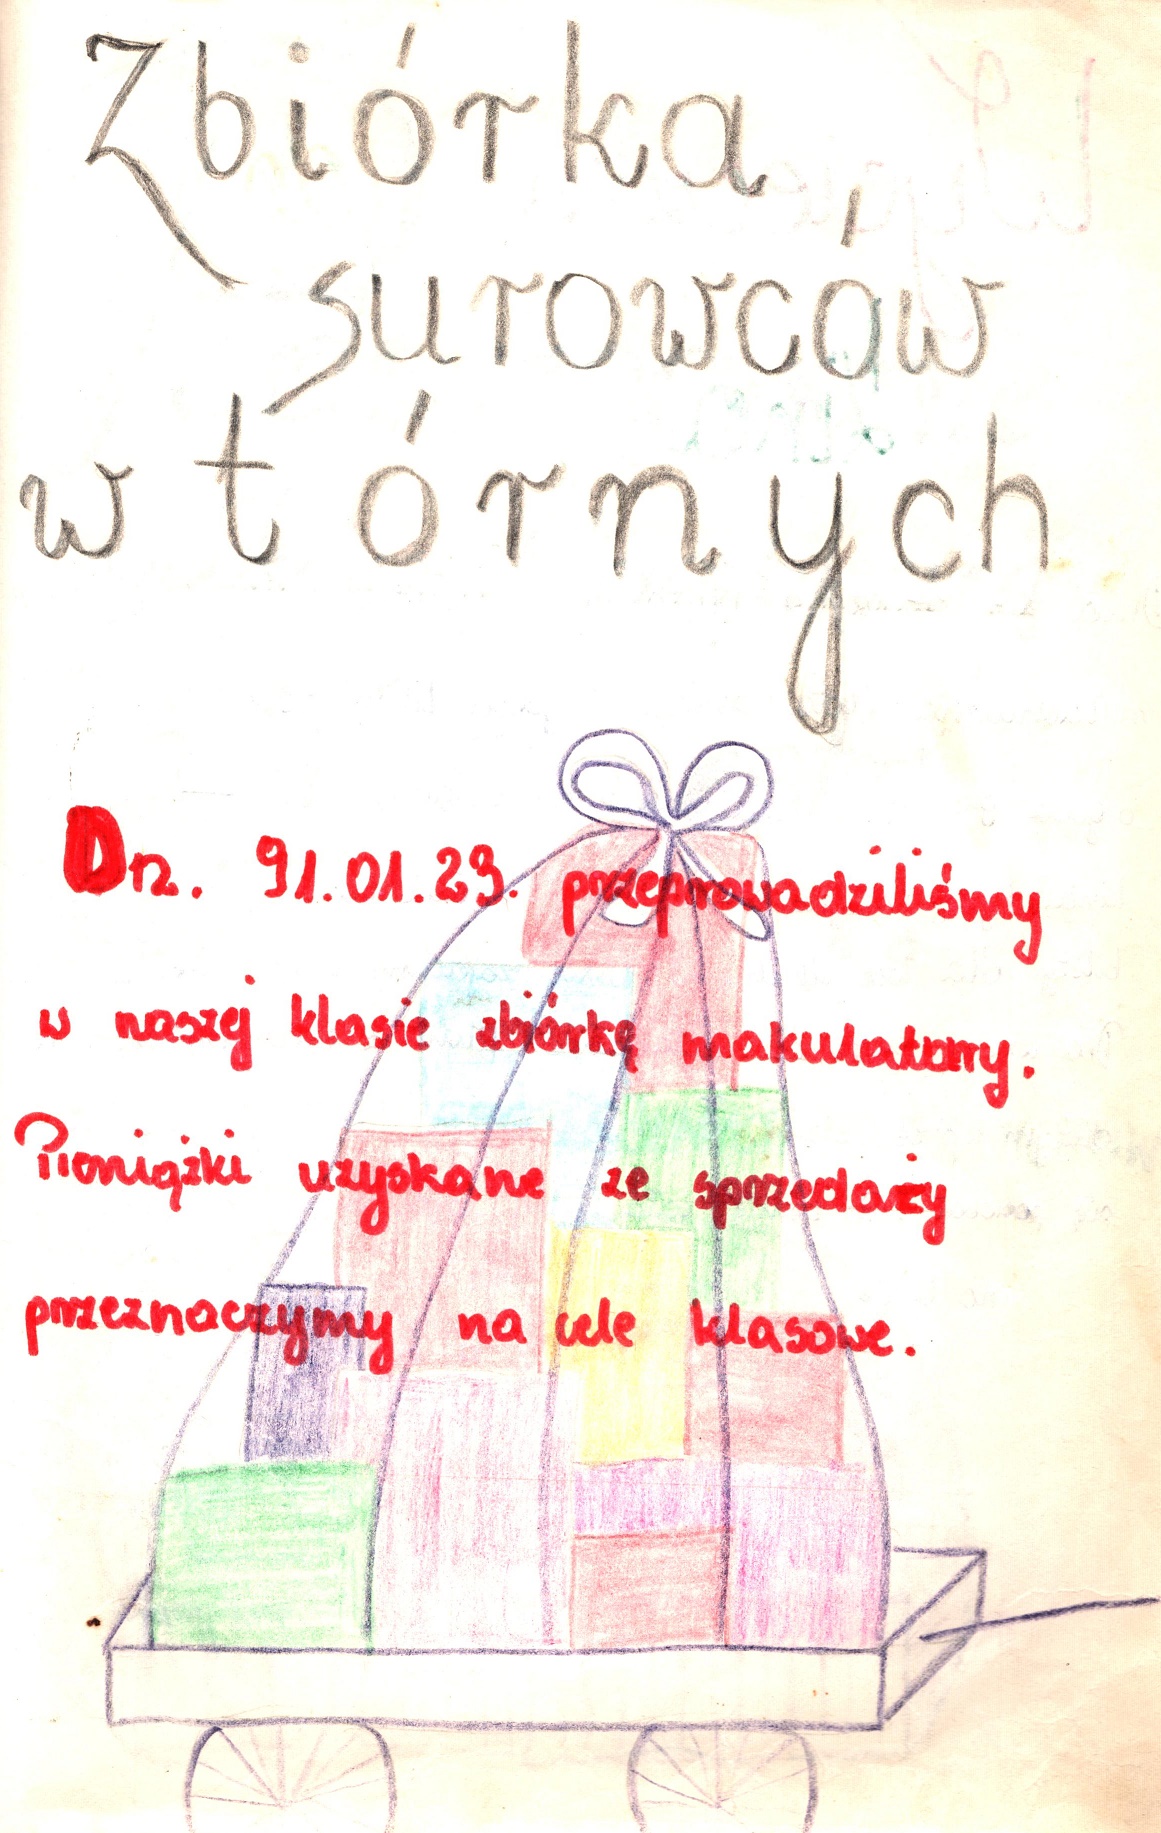 Zbiórka
surowców
wtórnych
Dn. 91.01.23. przeprowadziliśmy
w naszej klasie zbiórkę makulatury.
Pieniążki uzyskane ze sprzedaży
przeznaczymy na cele klasowe.